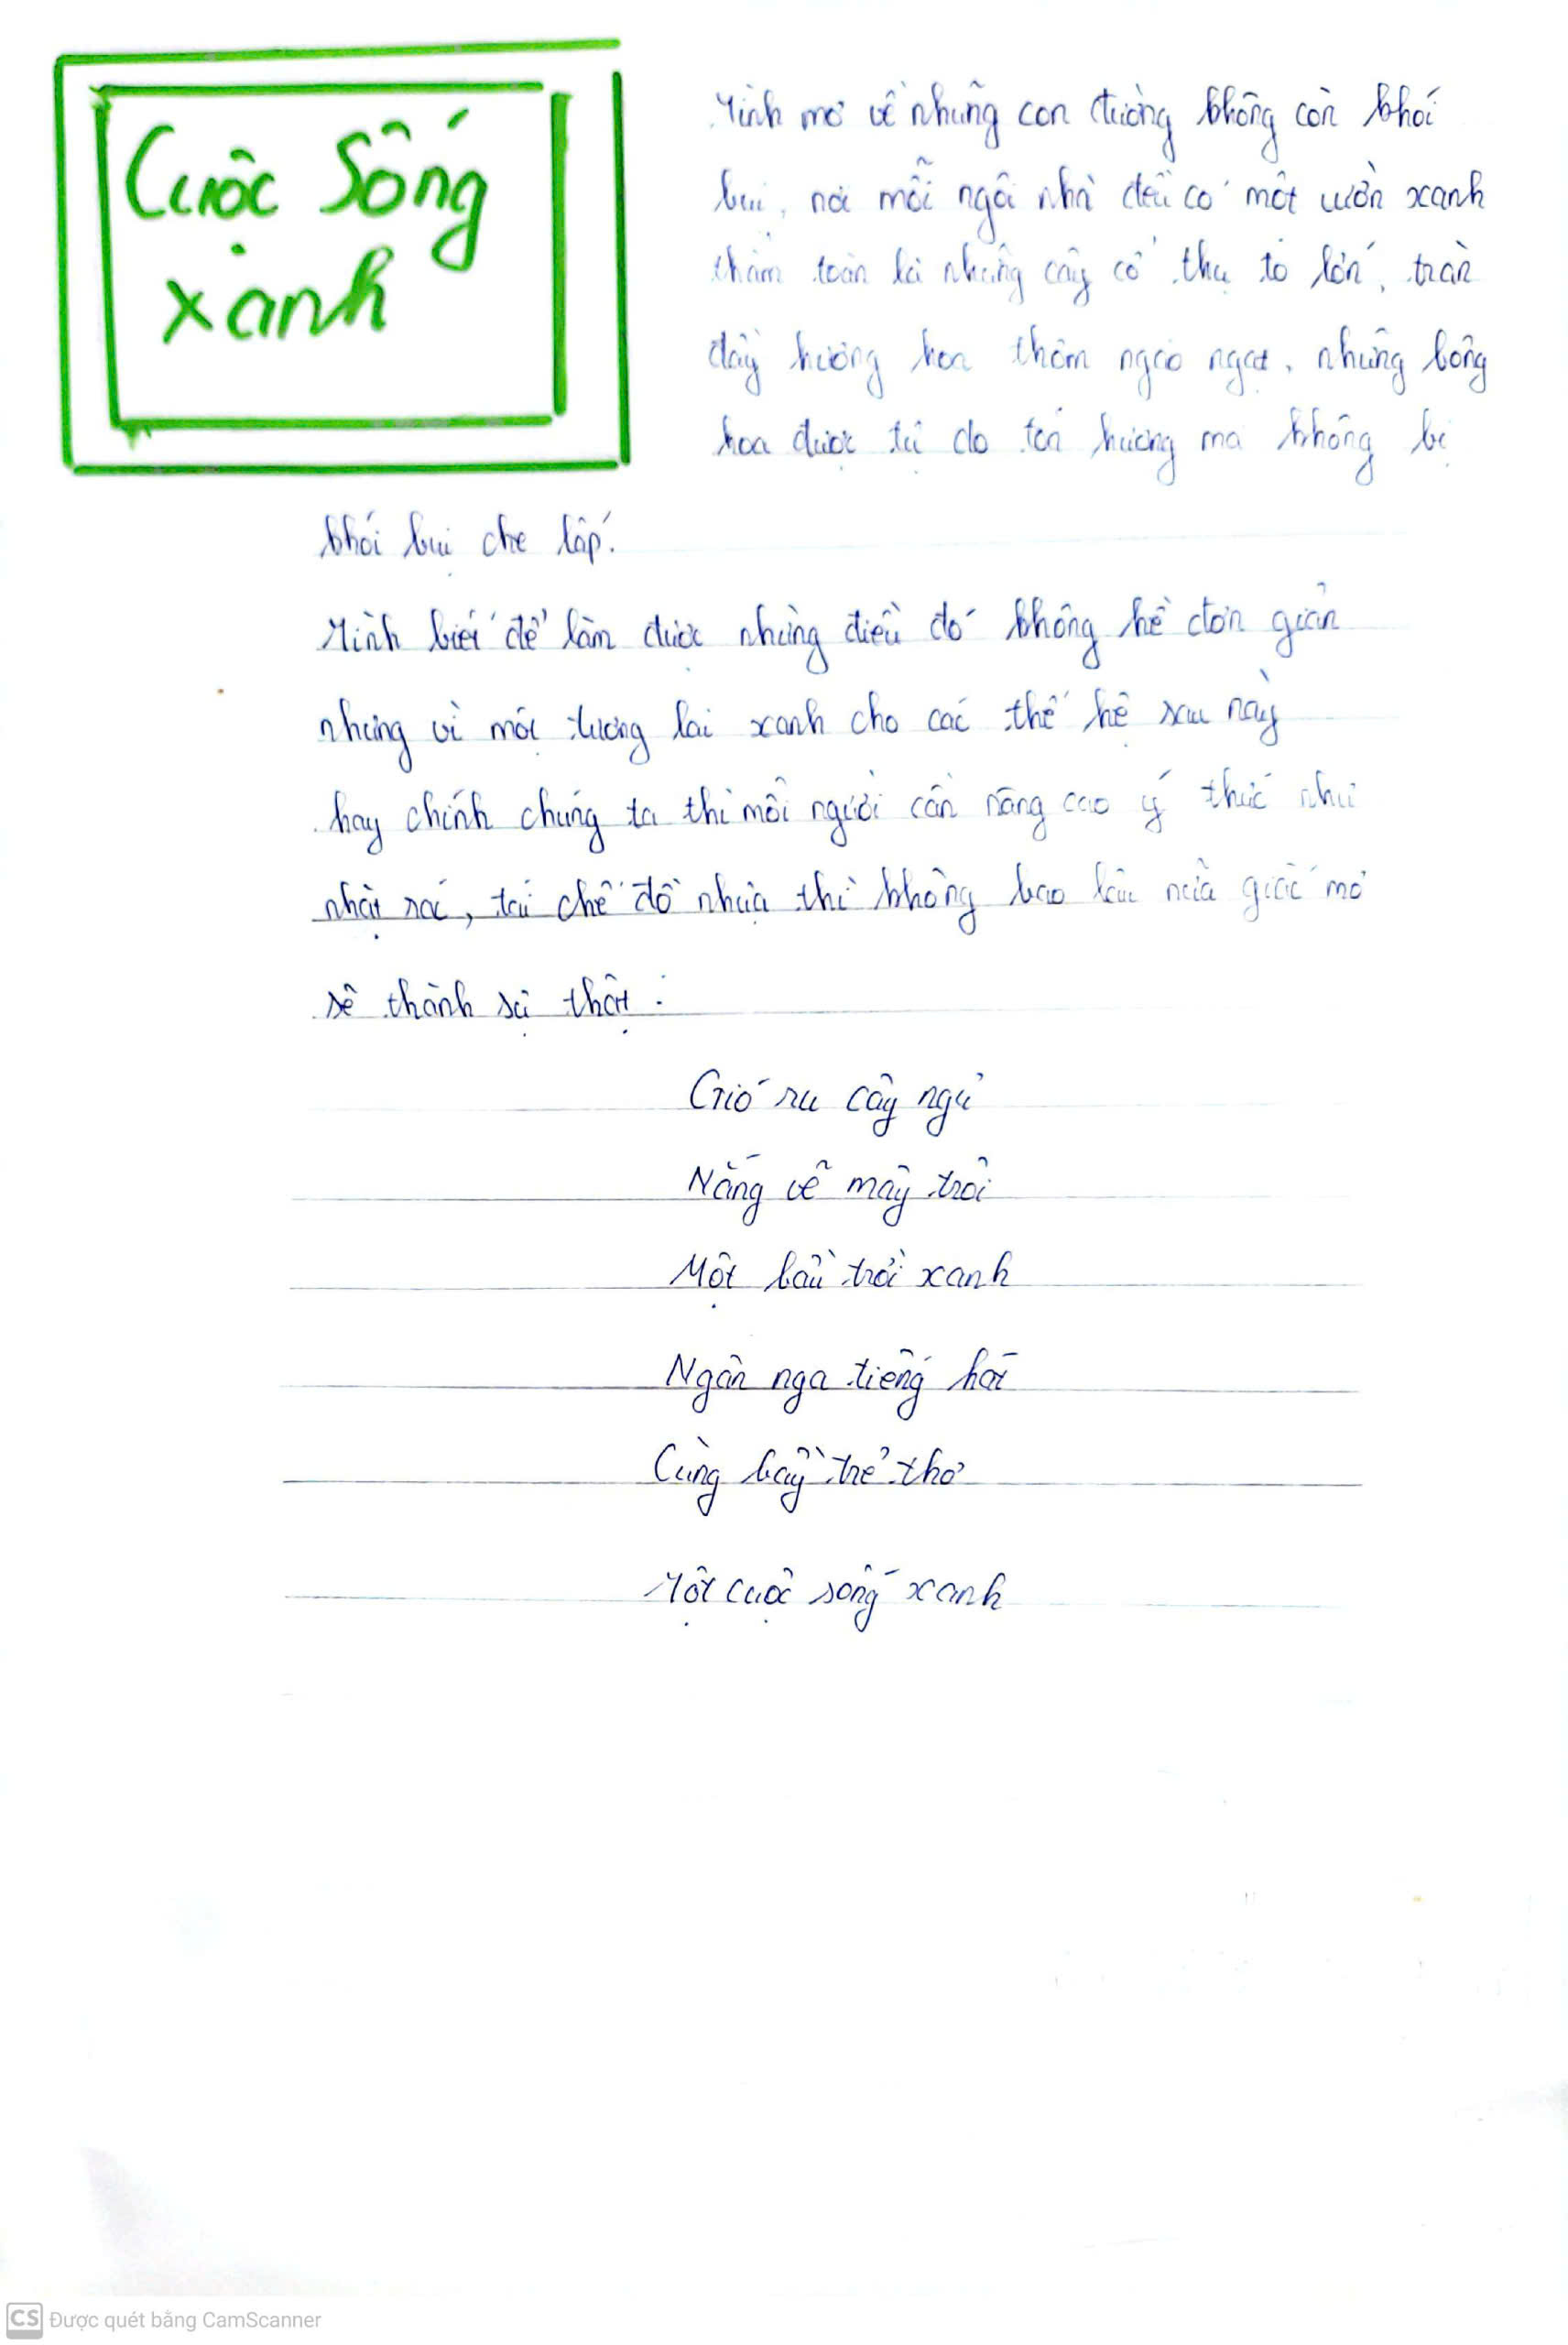 Cuộc Sống
xanh
Mình mơ về những con đường không còn khói
bụi, nơi mỗi ngôi nhà đều có một vườn xanh
thẳm toàn là những cây cổ thụ to lớn, tràn
đầy hương hoa thơm ngào ngạt, những bông
hoa được tự do toả hương mà không bị
khói bụi che lấp.
Mình biết để làm được những điều đó không hề đơn giản
nhưng vì một tương lai xanh cho các thế hệ sau này
hay chính chúng ta thì mỗi người cần nâng cao ý thức như
nhặt rác, tái chế đồ nhựa thì không bao lâu nữa giấc mơ
sẽ thành sự thật:
Gió ru cây ngủ
Nắng vẽ mây trôi
Một bầu trời xanh
Ngân nga tiếng hát
Cùng bầy trẻ thơ
Một cuộc sống xanh
CS Được quét bằng CamScanner